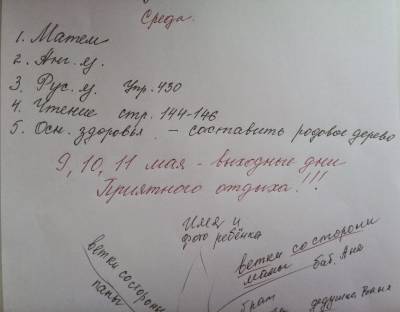 Среда.
1. Матем
2. Анг. яз.
3. Рус. яз. Упр. 430
4. Чтение стр. 144-146
5. Осн. здоровья - составить родовое дерево
9, 10, 11 мая - выходные дни
Приятного отдыха!!!
Имя и
фото ребёнка
ветки со стороны
папы
ветки со стороны
мамы
баб. Аня
брат
дедушка